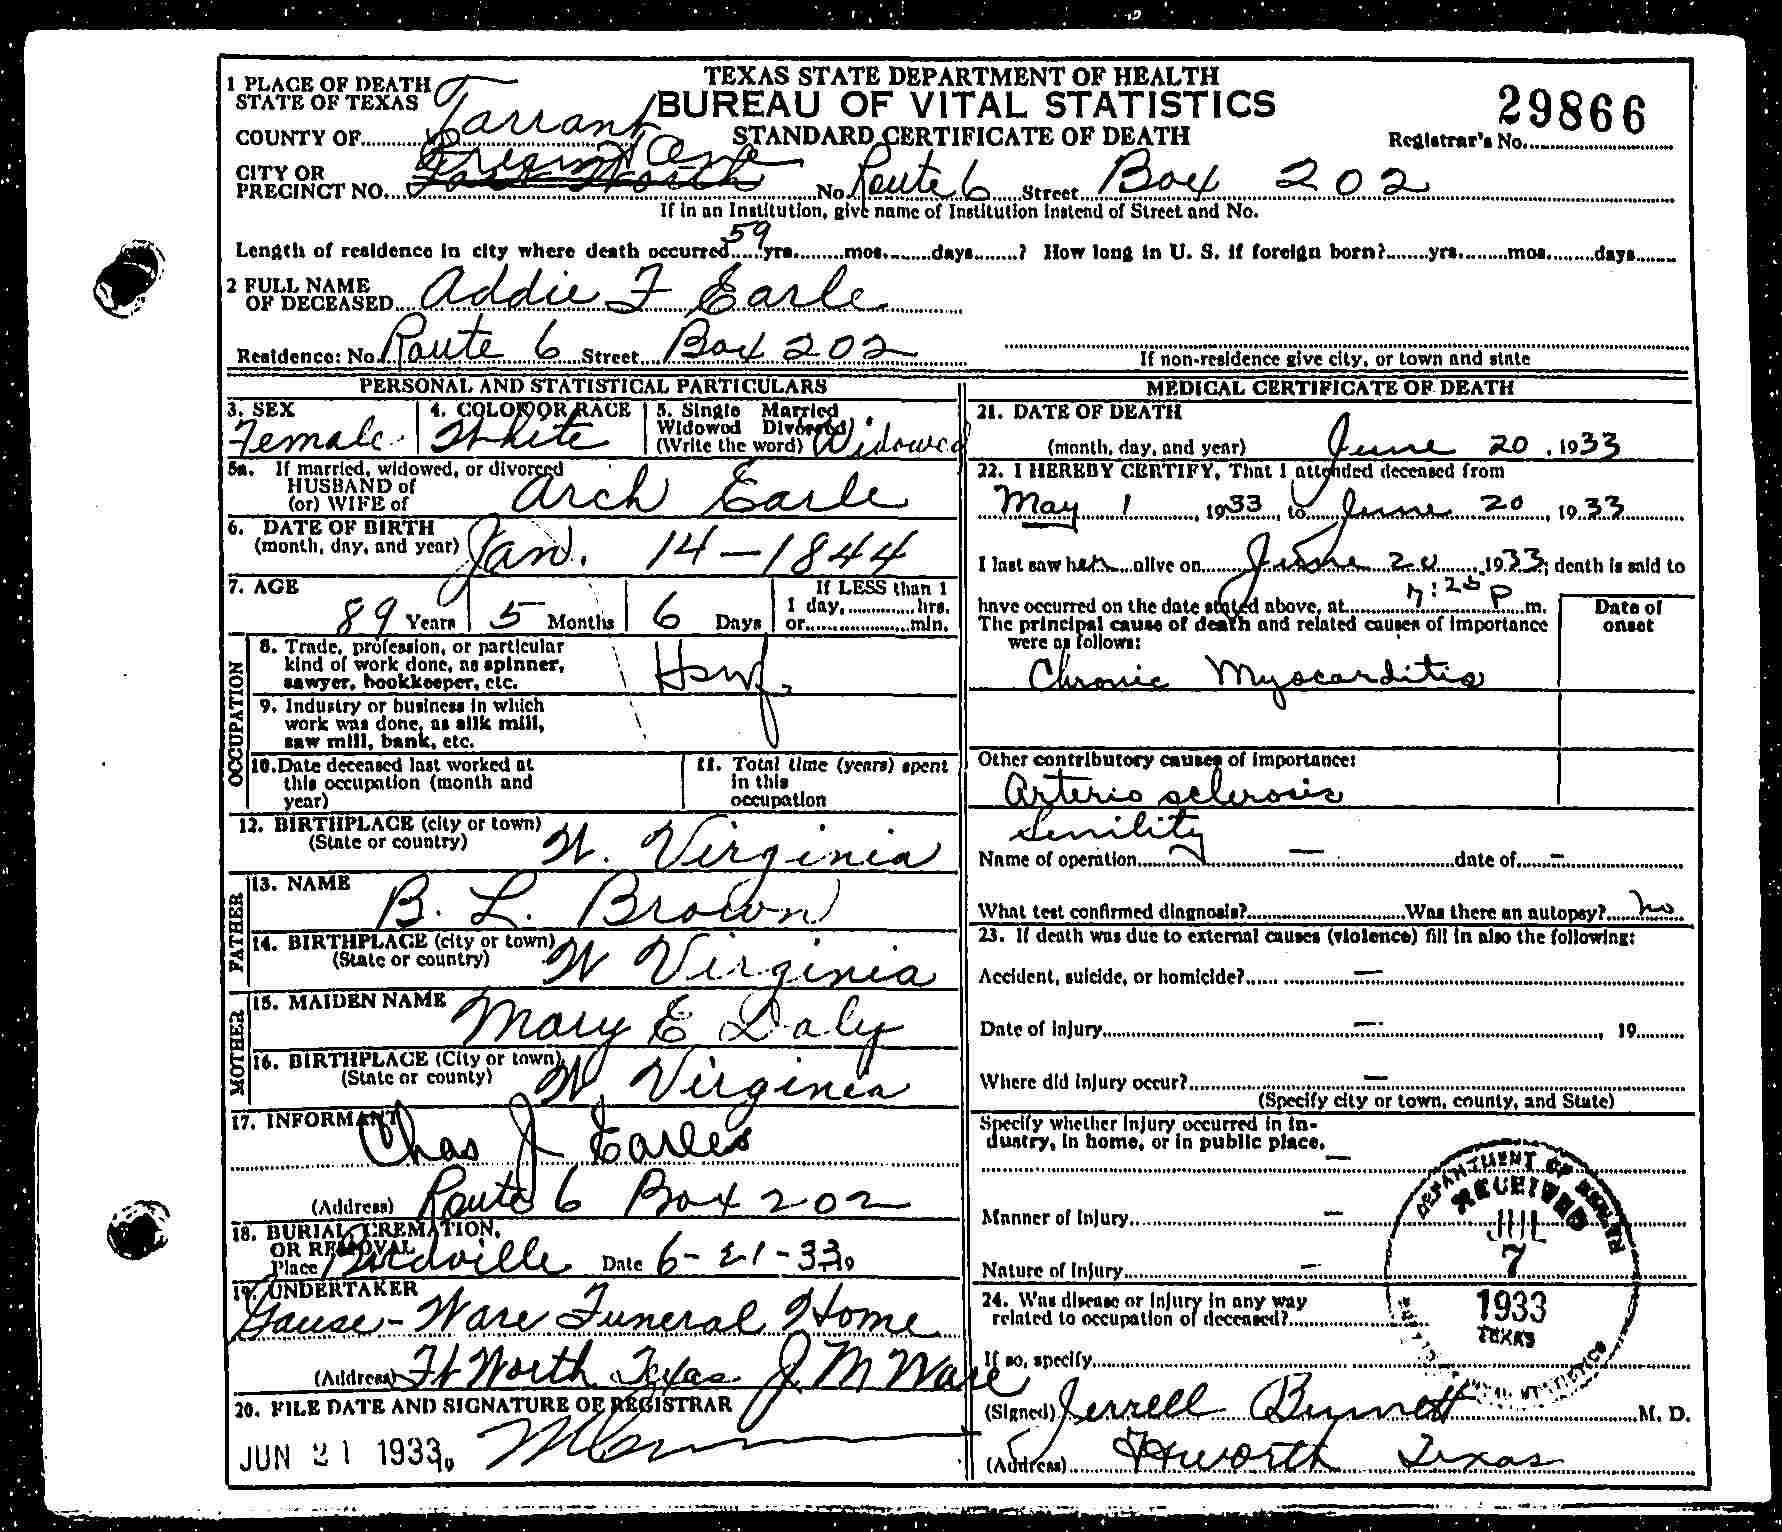 TEXAS STATE DEPARTMENT OF HEALTH
BUREAU OF VITAL STATISTICS
STANDARD CERTIFICATE OF DEATH
29866
Registrar's No.
1 PLACE OF DEATH
STATE OF TEXAS
COUNTY OF Tarrant
CITY OR
PRECINCT NO. Fort Worth No. Route 6 Street Box 202
If in an Institution, give name of Institution instead of Street and No.
Length of residence in city where death occurred 59 yrs. mos. days ? How long in U. S. if foreign born? yrs. mos. days
2 FULL NAME
OF DECEASED Addie F Earle
Residence: No. Route 6 Street Box 202
If non-residence give city, or town and state
PERSONAL AND STATISTICAL PARTICULARS
3. SEX
Female
4. COLOR OR RACE
White
5. Single Married
Widowed Divorced
(Write the word) Widowed
5a. If married, widowed, or divorced
HUSBAND of
(or) WIFE of Arch Earle
6. DATE OF BIRTH
(month, day, and year) Jan. 14-1844
7. AGE
89 Years 5 Months 6 Days
If LESS than 1
1 day, hrs.
or min.
OCCUPATION
8. Trade, profession, or particular
kind of work done, as spinner,
sawyer, bookkeeper, etc. Hswf.
9. Industry or business in which
work was done, as silk mill,
saw mill, bank, etc.
10. Date deceased last worked at
this occupation (month and
year)
11. Total time (years) spent
in this
occupation
12. BIRTHPLACE (city or town)
(State or country) W. Virginia
FATHER
13. NAME B. L. Brown
14. BIRTHPLACE (city or town)
(State or country) W Virginia
MOTHER
15. MAIDEN NAME Mary E Daly
16. BIRTHPLACE (City or town)
(State or county) W Virginia
17. INFORMANT
Chas J Earles
(Address) Route 6 Box 202
18. BURIAL, CREMATION,
OR REMOVAL
Place Birdville Date 6-21-33 19
19. UNDERTAKER
Gause-Ware Funeral Home
(Address) Ft Worth Texas J M Ware
20. FILE DATE AND SIGNATURE OF REGISTRAR
JUN 21 1933
MEDICAL CERTIFICATE OF DEATH
21. DATE OF DEATH
(month, day, and year) June 20, 1933
22. I HEREBY CERTIFY, That I attended deceased from
May 1, 1933, to June 20, 1933
I last saw her alive on June 20, 1933; death is said to
have occurred on the date stated above, at 7:25 P m.
The principal cause of death and related causes of importance
were as follows:
Date of
onset
Chronic Myocarditis
Other contributory causes of importance:
Arterio sclerosis
Senility
Name of operation — date of —
What test confirmed diagnosis? Was there an autopsy? no
23. If death was due to external causes (violence) fill in also the following:
Accident, suicide, or homicide? —
Date of injury —, 19
Where did injury occur? —
(Specify city or town, county, and State)
Specify whether injury occurred in in-
dustry, in home, or in public place. —
Manner of injury —
Nature of injury —
24. Was disease or injury in any way
related to occupation of deceased?
If so, specify
(Signed) Jerrell Bennett M. D.
(Address) Ft Worth Texas
DEPARTMENT OF HEALTH
RECEIVED
JUL
7
1933
TEXAS